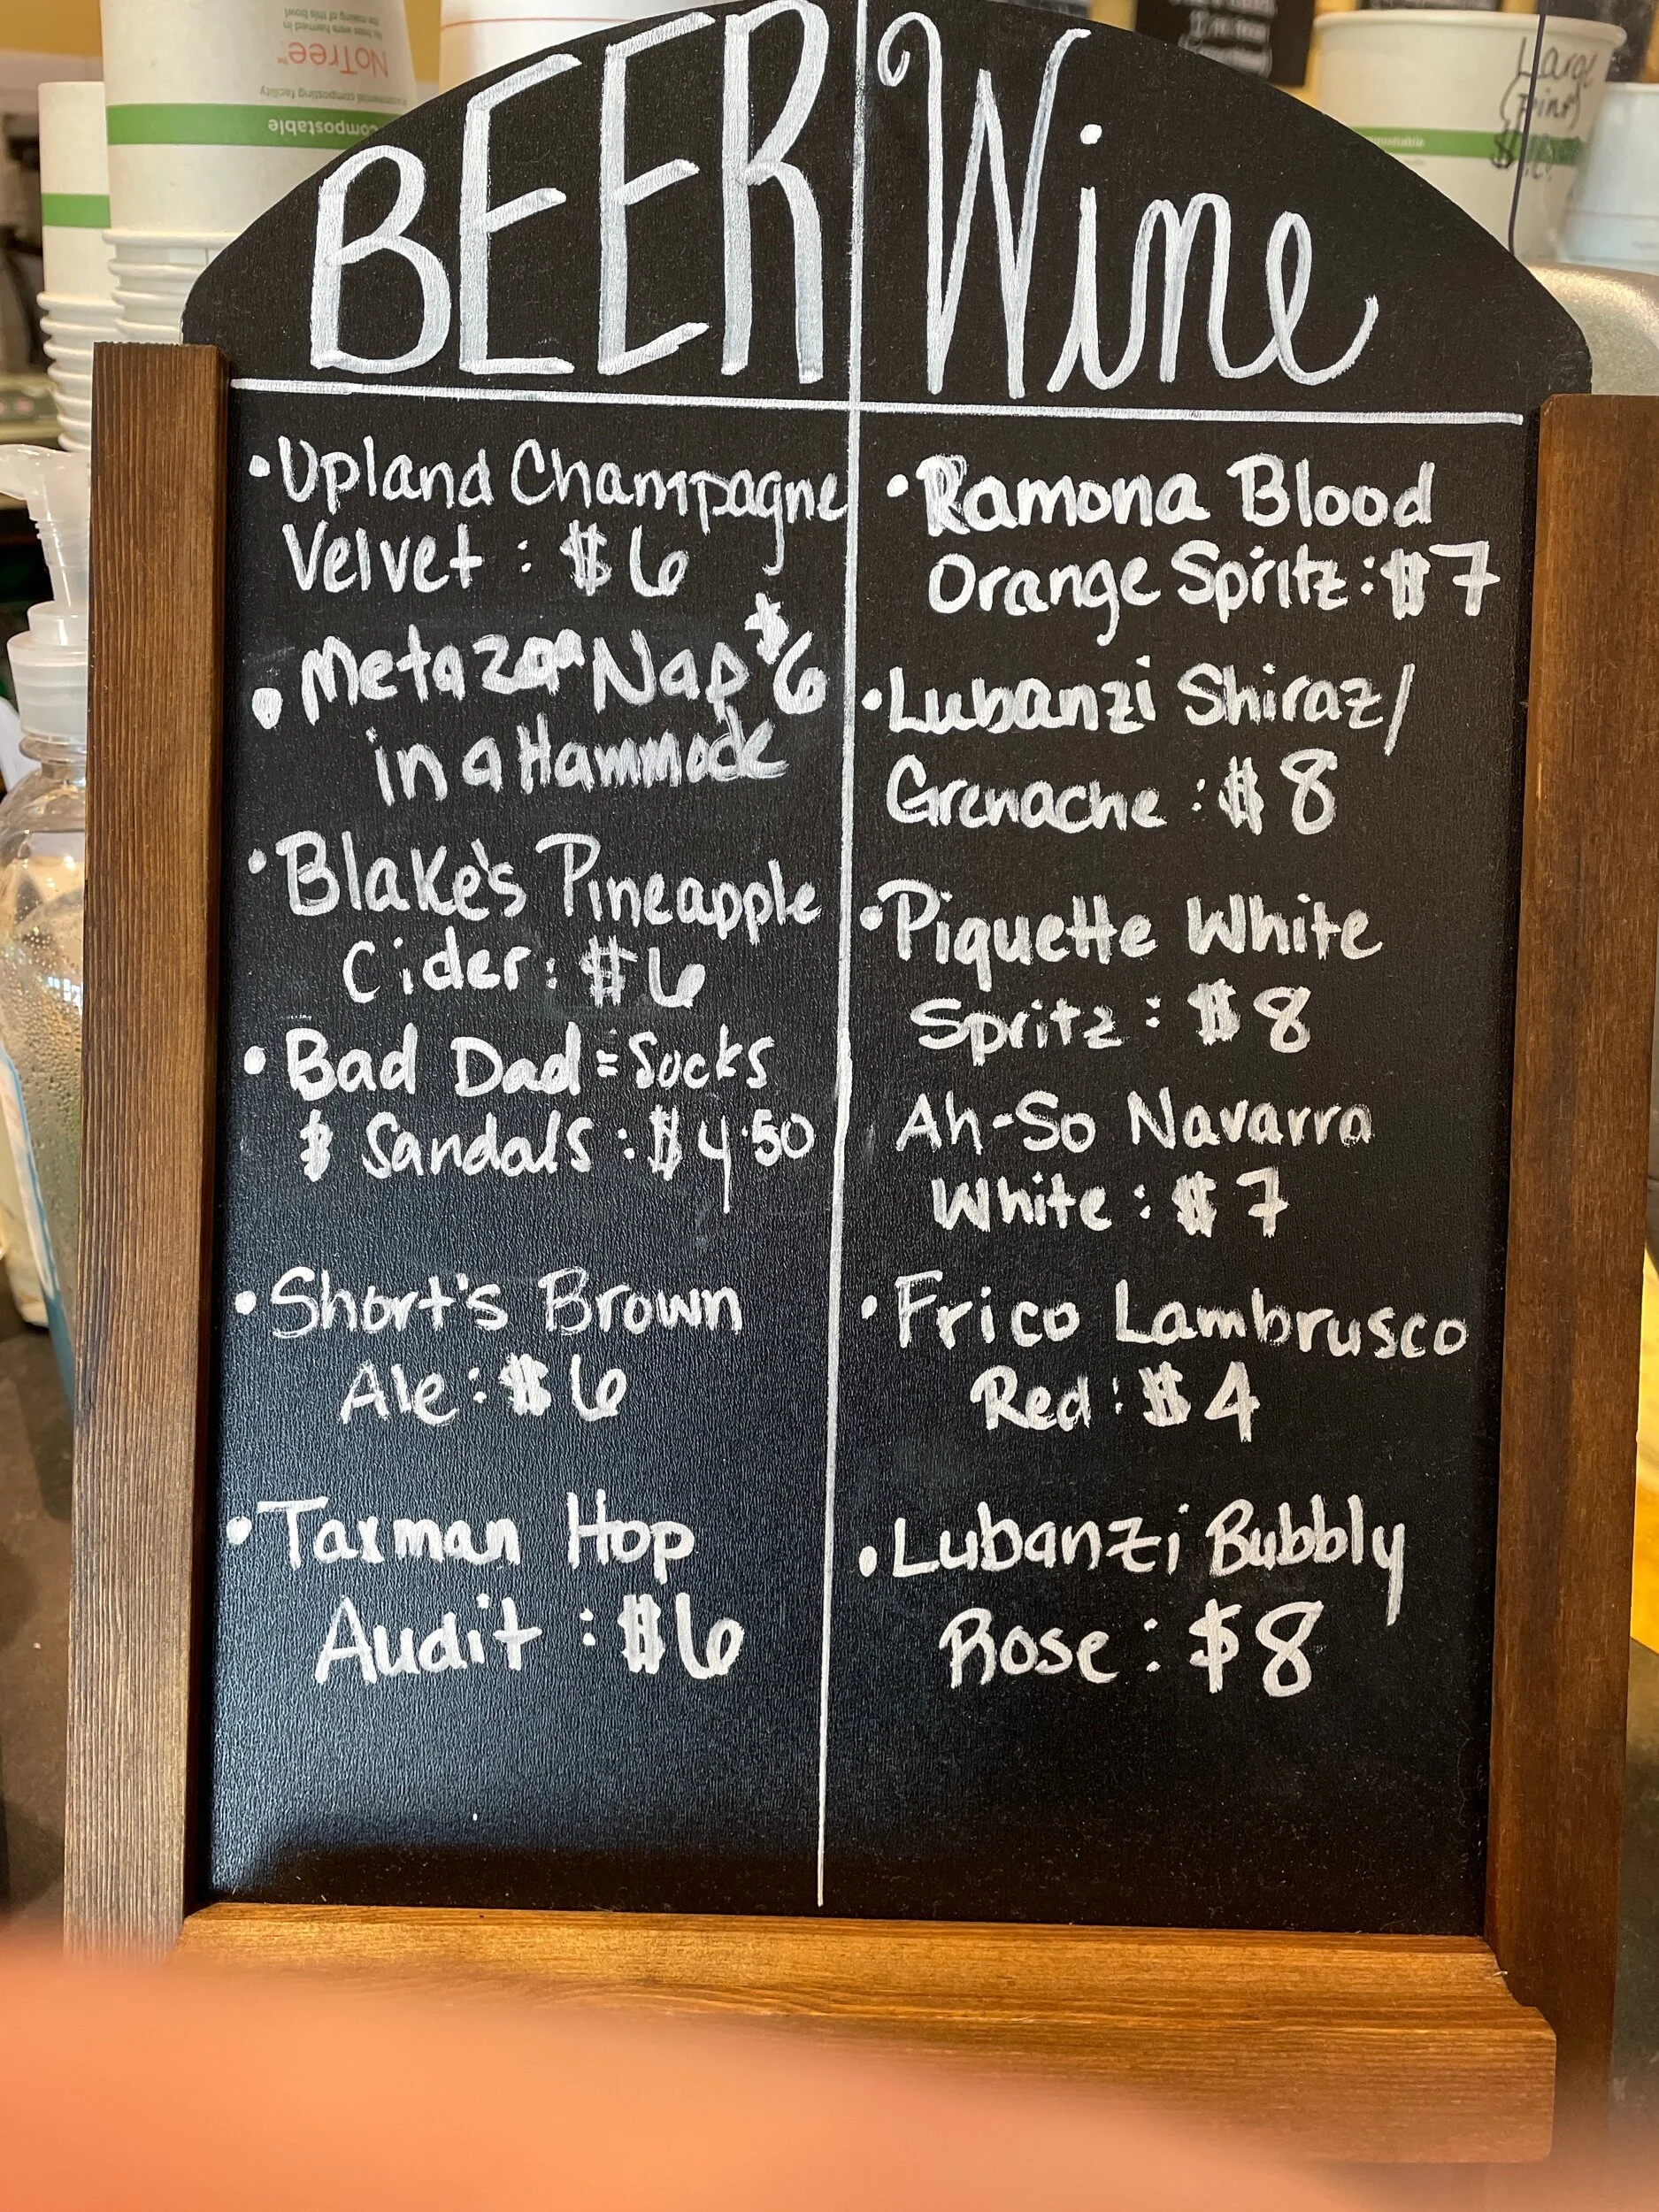 NoTree™
compostable
BEER
Wine
•Upland Champagne
Velvet : $6
•Metazoa Nap $6
in a Hammock
•Blake's Pineapple
Cider: $6
•Bad Dad = Socks
& Sandals : $4.50
•Short's Brown
Ale : $6
•Taxman Hop
Audit : $6
•Ramona Blood
Orange Spritz : $7
•Lubanzi Shiraz/
Grenache : $8
•Piquette White
Spritz : $8
Ah-So Navarra
White : $7
•Frico Lambrusco
Red : $4
•Lubanzi Bubbly
Rose : $8
Large